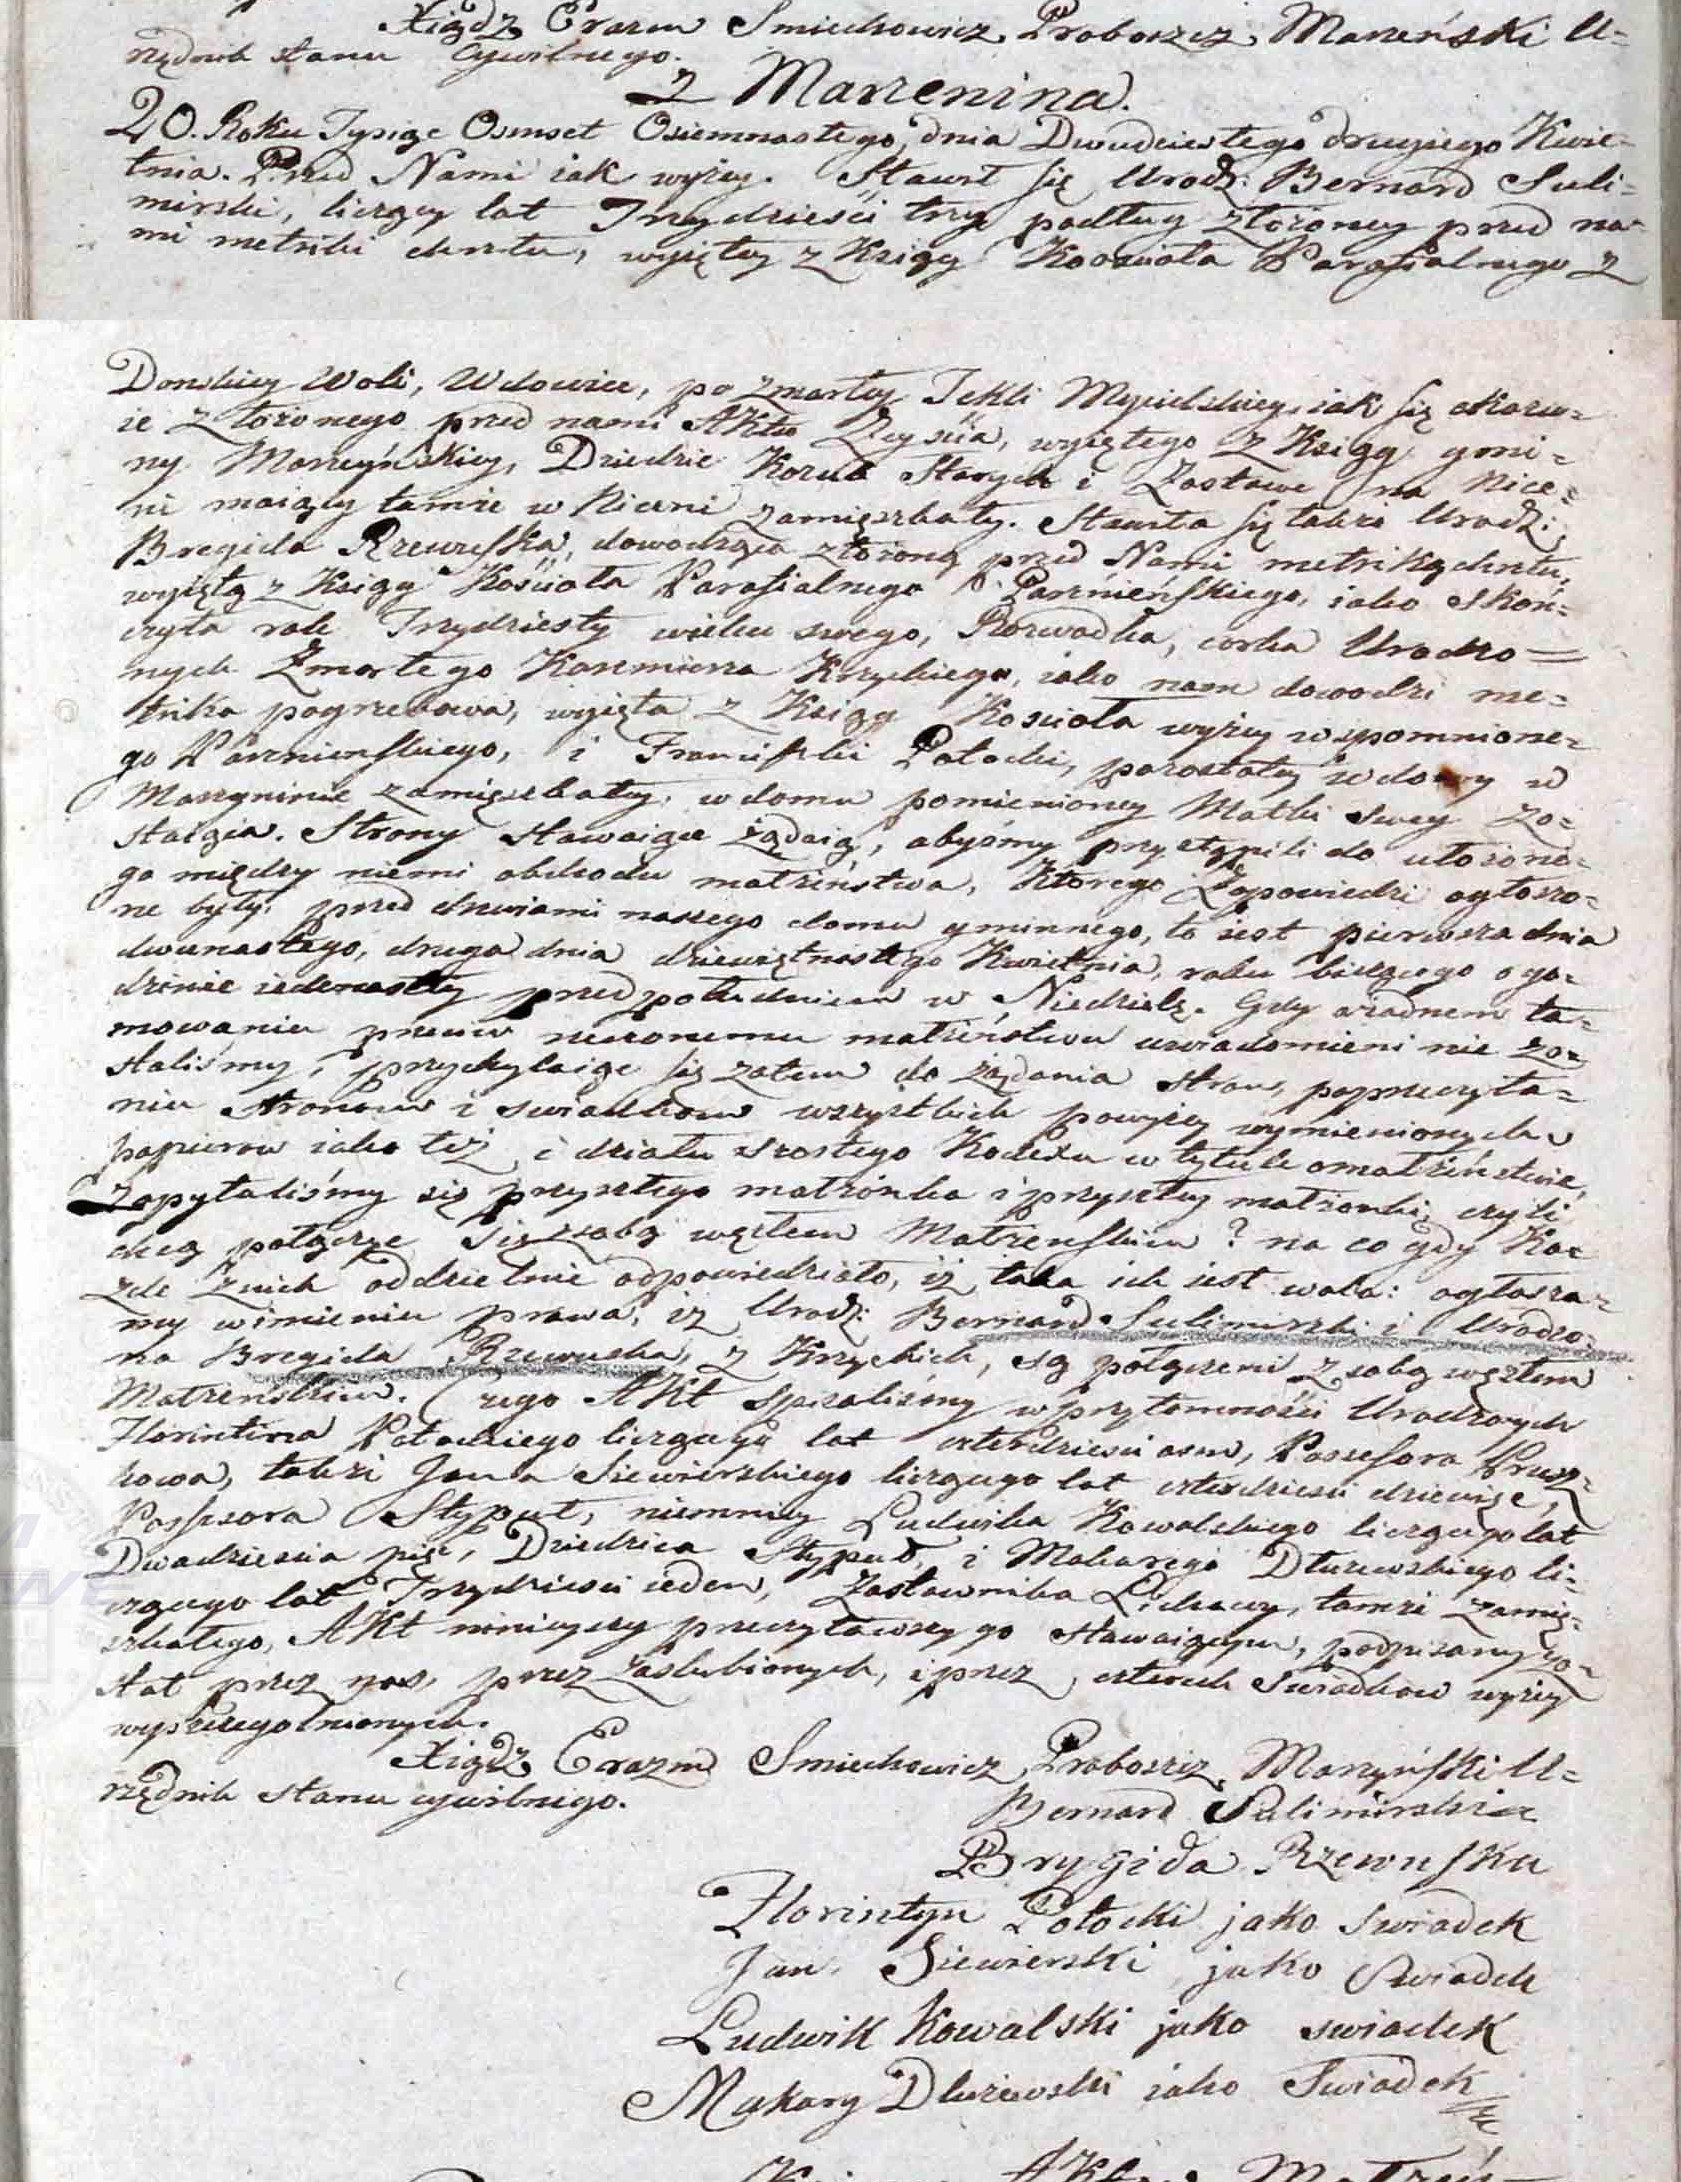 Xiądz Erazm Smiechowicz Proboszcz Marzeński U=
rzędnik stanu Cywilnego.
z Marzenina.
20. Roku Tysiąc Osmset Osiemnastego, dnia Dwudziestego drugiego Kwie=
tnia. Przed Nami iak wyżey. Stawił się Urodz: Bernard Suli=
mirski, liczący lat Trzydzieści trzy podług złożoney przed na=
mi metriki chrztu, wyiętey z Księgi Kościoła Parafialnego z
Woli, Wdowiec, po zmarłey Tekli Mycielskiey, iak się okazu=
ie złożonego przed nami Aktu Zeyścia, wyiętego z Księgi gmi=
ny Marzyńskiey, Dziedzic Kozub Starych i Zastawę na
maiący tamże w zamięszkały. Stawiła się także Urodz:
Bregida Rzewuska, dowodząca złożoną przed Nami metriką chrztu,
wyiętą z Księgi Kościoła Parafialnego Parznieńskiego, iako skoń=
czyła rok Trzydziesty wieku swego, Rozwodka, corka Urodzo=
nych Zmarłego Kazmierza Krzyckiego, iako nam dowodzi me=
trika pogrzebowa, wyięta z Księgi Kościoła wyżey wspomnione=
go Parznienskiego, i Franciszki Potocki, pozostałey wdowy w
Marzyninie zamięszkałey, w domu pomienioney Matki swey zo=
staiąca. Strony stawaiące żądaią, abyśmy przystąpili do ułożone=
go między niemi obchodu małżeństwa, którego Zapowiedzi ogłoszo=
ne były przed drzwiami naszego domu gminnego, to iest pierwsza dnia
dwunastego, druga dnia dziewiętnastego Kwietnia, roku bieżącego o go=
dzinie iedenastey przed południem w Niedzielę. Gdy o żadnem ta=
mowaniu przeciw rzeczonemu małżeństwu uwiadomieni nie zo=
staliśmy, przychylaiąc się zatem do żądania stron, po przeczyta=
niu stronom i swiadkom wszystkich powyżey wymienionych
papierow iako też i działu szostego Kodexu w tytule o małżeństwie,
Zapytaliśmy się przyszłego małżonka i przyszłey małżonki, czyli
chcą połączyć się z sobą węzłem Małżenskim? na co gdy Ka=
żde z nich oddzielnie odpowiedziało, iż taka ich iest wola: ogłasza=
my w imieniu prawa, iż Urodz: Bernard Sulimirski i Urodzo=
na Bregida Rzewuska, z Krzyckich, są połączeni z sobą węzłem
Małżeńskim. Czego Akt spisaliśmy w przytomności Urodzonych
Florintina Potockiego liczącego lat czterdzieści osm, Possesora
także Jana Siewierskiego liczącego lat czterdzieści dziewięć,
Possesora Stypuł, niemniey Ludwika Kowalskiego liczącego lat
Dwadzieścia pięć, Dziedzica Stypuł, i Makarego Dłużewskiego li=
czącego lat Trzydzieści ieden, Zastawnika Lichawy, tamże zamię=
szkałego, Akt ninieyszy przeczytawszy go stawaiącym, podpisany zo=
stał przez nas, przez Zaslubionych, i przez czterech Swiadkow wyżey
wyszczegolnionych.
Xiądz Erazm Smiechowicz Proboszcz Marzyński U=
rzędnik stanu cywilnego.
Bernard Sulimirski
Brygida Rzewuska
Florintyn Potocki jako swiadek
Jan Siewierski jako Swiadek
Ludwik Kowalski jako swiadek
Makary Dłużewski iako Swiadek